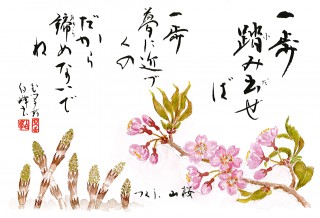 一歩
踏み出せば
一歩
夢に近づくの
だから
諦めないでね
つくし 山桜